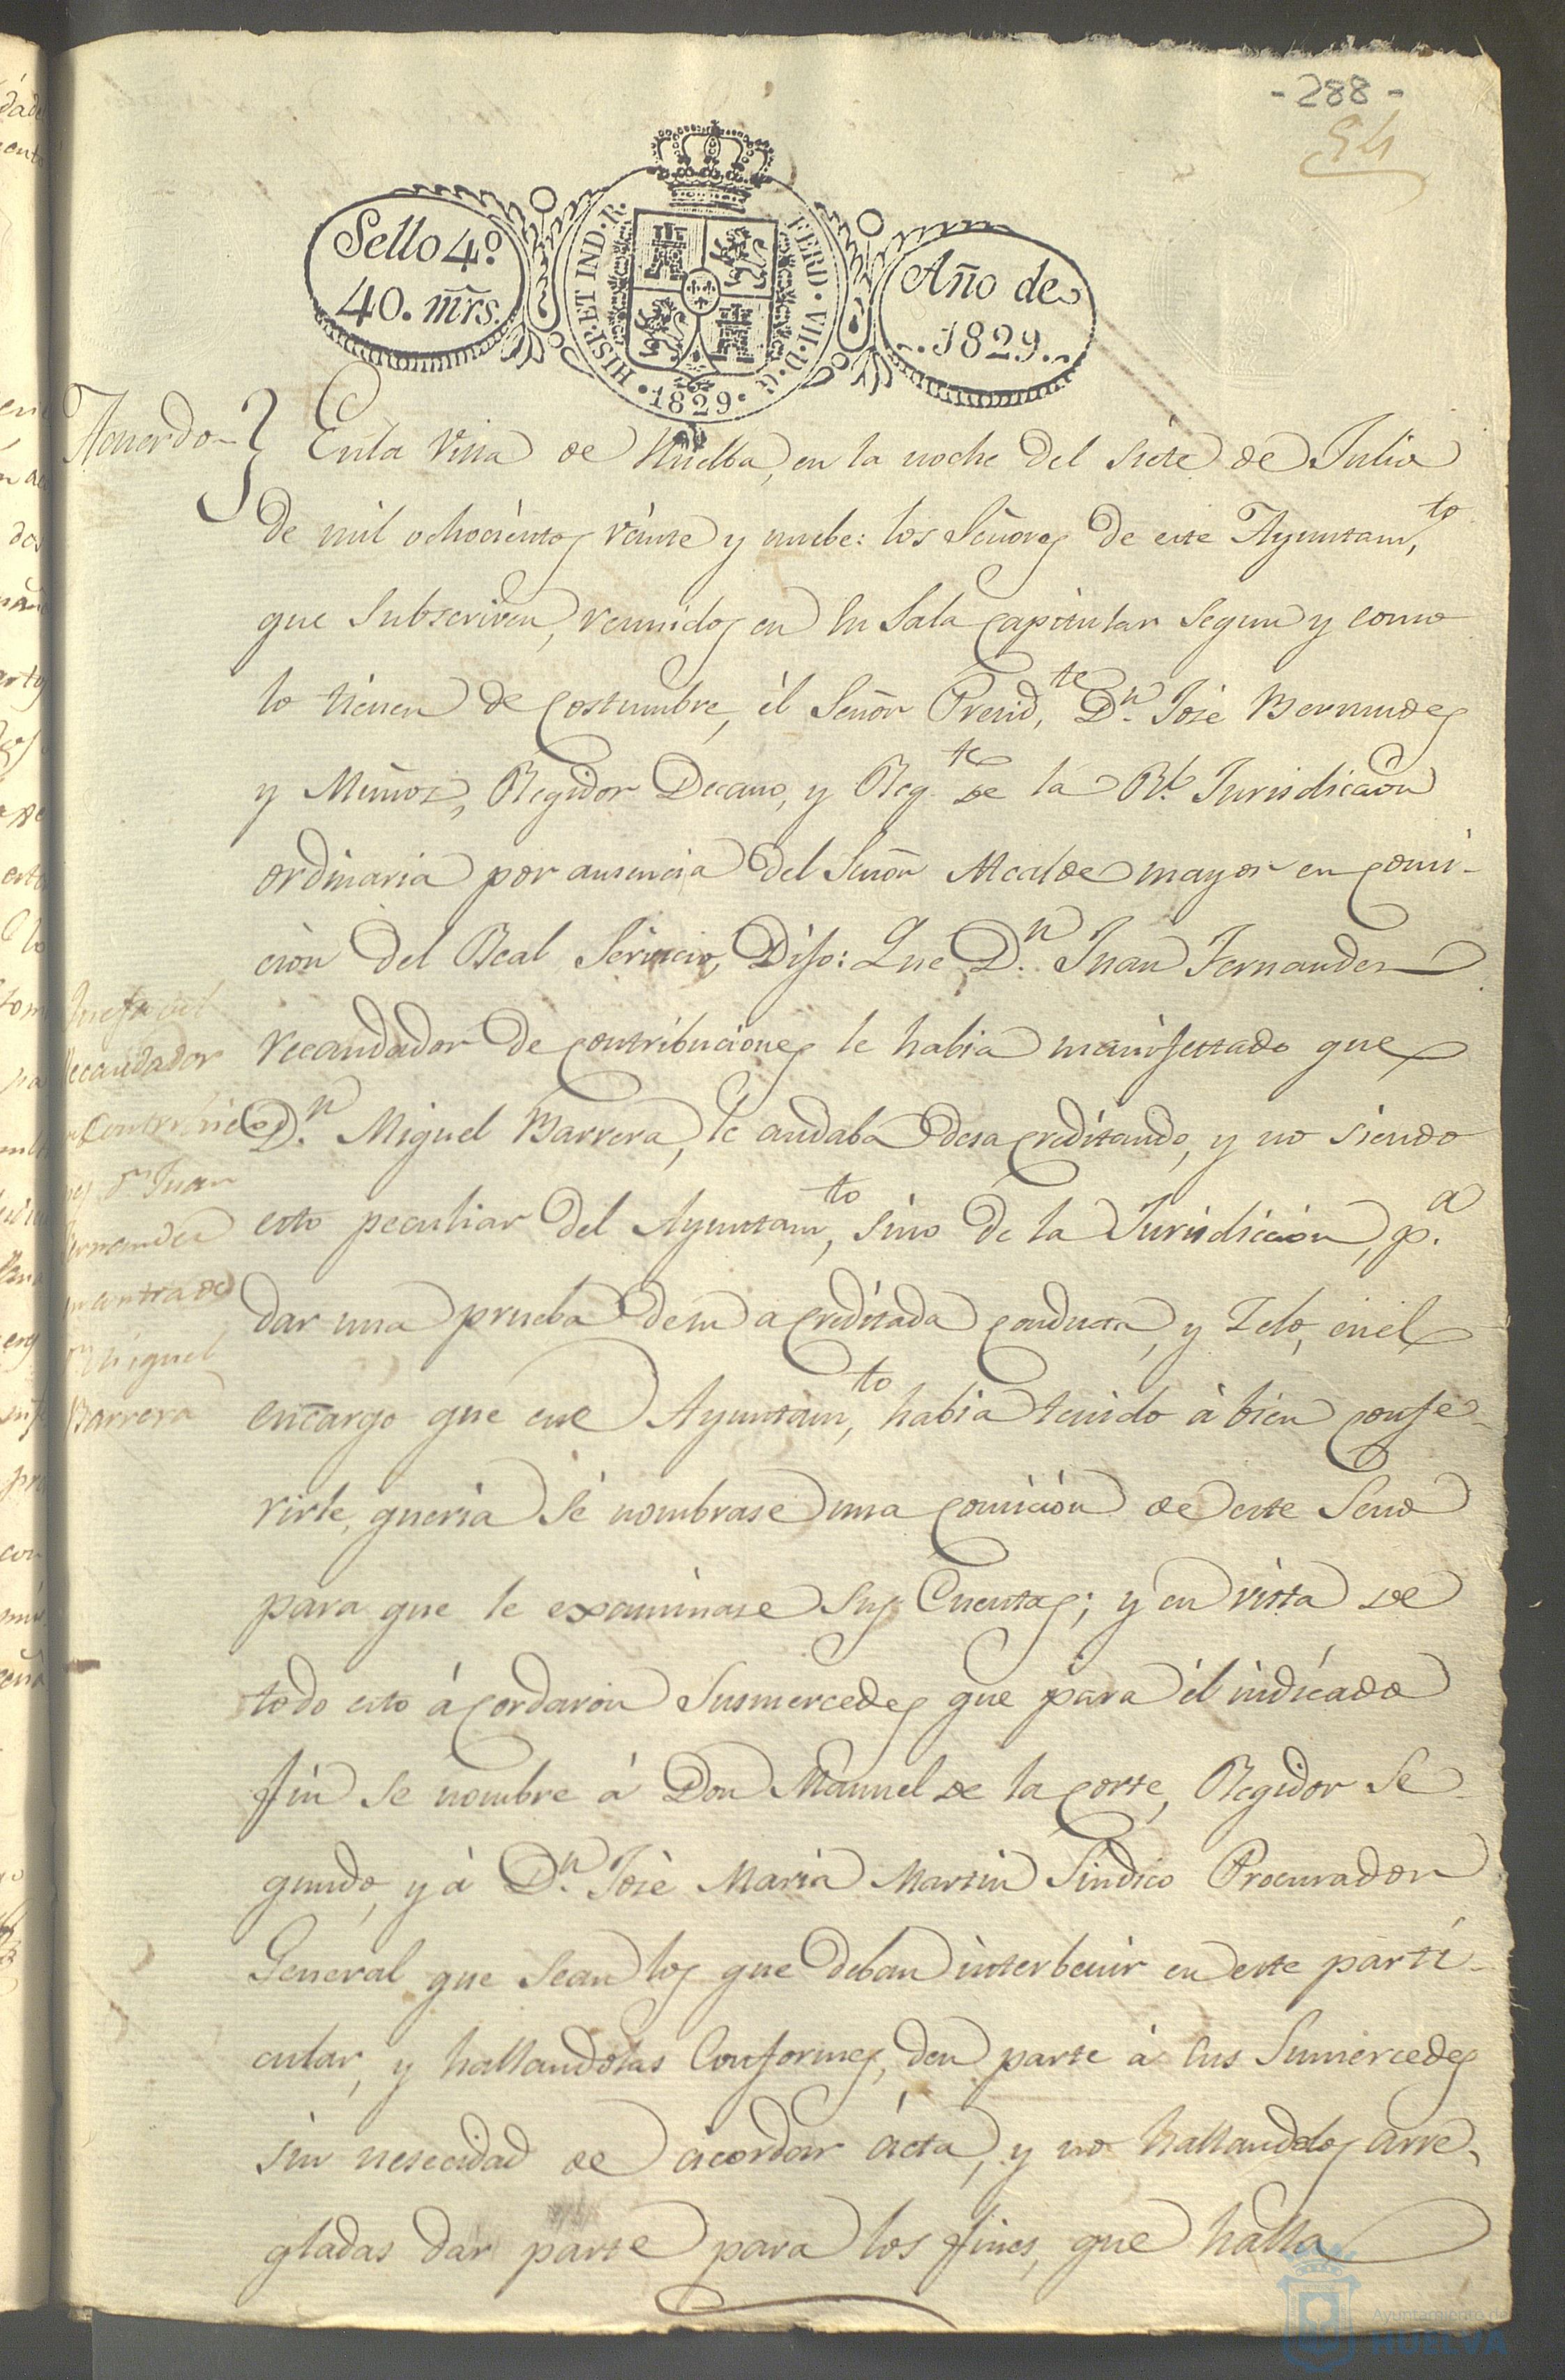 - 288 -
94
Sello 4º
40. mrs.
HISP. ET IND. R.
FERD. VII. D. G.
1829
Año de
1829
Acuerdo
En la Villa de Huelba, en la noche del siete de Julio
de mil ochocientos veinte y nuebe: los Señores de este Ayuntam.to
que subscriven, reunidos en su Sala capitular segun y como
lo tienen de costumbre, el Señor Presid.te D.n José Bermudes
y Muñoz, Regidor Decano, y Reg.te de la R.l Jurisdiccion
ordinaria por ausencia del Señor Alcalde mayor en comi-
cion del Real Servicio, Dijo: Que D.n Juan Fernandez
recaudador de contribuciones le habia manifestado que
D.n Miguel Barrera, le andaba desacreditando, y no siendo
esto peculiar del Ayuntam.to, sino de la Jurisdiccion, p.a
dar una prueba de su acreditada conducta, y Zelo, en el
encargo que ese Ayuntam.to habia tenido á bien confe-
rirle, queria se nombrase una comicion de este Seno
para que le examinase sus Cuentas; y en vista de
todo esto ácordaron Susmercedes que para él indicado
fin se nombre á Don Manuel de la Corte, Regidor Se-
gundo, y á D.n José Maria Martin Sindico Procurador
General que sean los que deban interbenir en este parti-
cular, y hallandolas Conformes, den parte á sus Sumercedes
sin nesecidad de acordar ácta, y no hallandolas arre-
gladas dar parte para los fines, que halla
Quefa del
Recaudador
Contribucio
nes D.n Juan
Fernandez
en contra de
D.n Miguel
Barrera
Ayuntamiento de
HUELVA